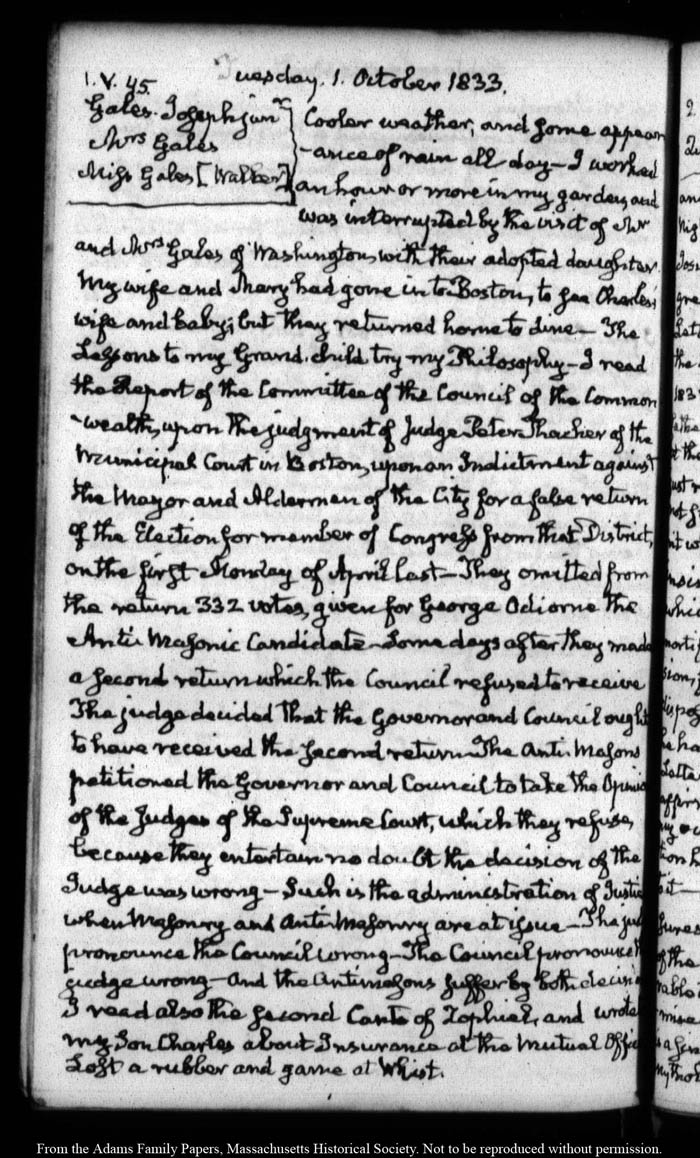 Tuesday. 1. October 1833.
I. V. 45.
Gales. Joseph junr
Mrs Gales
Miss Gales [Walker]
Cooler weather, and some appear
-ance of rain all day — I worked
an hour or more in my garden, and
was interrupted by the visit of Mr
and Mrs Gales of Washington, with their adopted daughter.
My wife and Mary had gone in to Boston, to see Charles's
wife and baby; but they returned home to dine — The
Lessons to my Grand-child try my Philosophy — I read
the Report of the Committee of the Council of the Common
-wealth, upon the judgment of Judge Peter Thacher of the
Municipal Court in Boston, upon an Indictment against
the Mayor and Aldermen of the City for a false return
of the Election for member of Congress from that District,
on the first Monday of April last — They omitted from
the return 332 votes, given for George Odiorne the
Anti-Masonic Candidate — Some days after they made
a second return which the Council refused to receive
The judge decided that the Governor and Council ought
to have received the second return — The Anti-Masons
petitioned the Governor and Council to take the Opinio
of the Judges of the Supreme Court, which they refuse,
because they entertain no doubt the decision of the
Judge was wrong — Such is the administration of Justic
when Masonry and Anti-Masonry are at issue — The jud
pronounce the Council wrong — The Council pronounce t
judge wrong — And the Antimasons suffer by both decisi
I read also the second Canto of Zophiel, and wrote
my Son Charles about Insurance at the Mutual Offic
Lost a rubber and game at Whist.
From the Adams Family Papers, Massachusetts Historical Society. Not to be reproduced without permission.